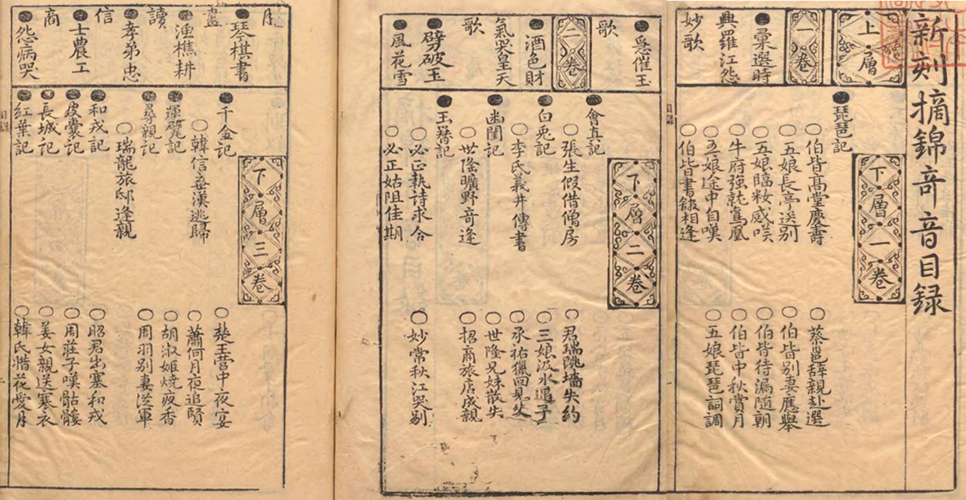 新刻摘錦奇音目録
上層
一卷
彙選時
興羅江怨
妙歌
下層一卷
琵琶記
○伯皆高堂慶壽 ○蔡邕辭親赴選
○五娘長亭送別 ○伯皆別妻應舉
○五娘臨粧感嘆 ○伯皆待漏隨朝
○牛府強就鸞凰 ○伯皆中秋賞月
○五娘途中自嘆 ○五娘琵琶詞調
○伯皆書館相逢
急催玉
歌
二卷
酒色財
氣哭皇天
歌
劈破玉
風花雪
下層二卷
會真記
○張生假借僧房 ○君瑞跳墻失約
白兎記
○李氏義井傳書 ○三娘汲水遇子
○承祐獵回見父
幽閨記
○世隆曠野奇逢 ○世隆兄妹散失
○招商旅店成親
玉簪記
○必正執詩求合
○必正姑阻佳期 ○妙常秋江哭別
月
琴棋書
畫
漁樵耕
讀
孝弟忠
信
士農工
商
怨病哭
下層三卷
千金記 ○楚王營中夜宴
○韓信弃漢逃歸 ○蕭何月夜追賢
運甓記 ○胡淑姬燒夜香
尋親記 ○周羽別妻從軍
○瑞龍旅邸逢親
和戎記 ○昭君出塞和戎
皮囊記 ○周莊子嘆骷髏
長城記 ○姜女親送寒衣
紅葉記 ○韓氏惜花愛月